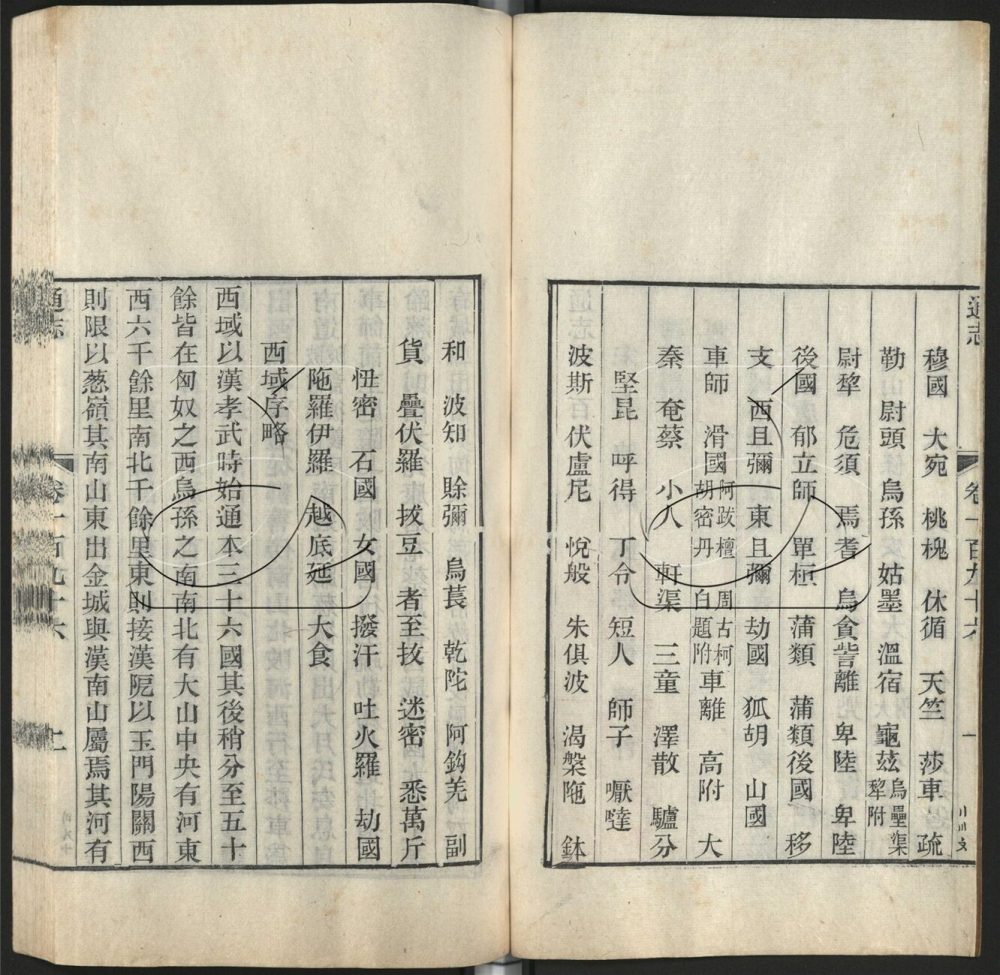 通志
卷一百九十六
一
穆國 大宛 桃槐 休循 天竺 莎車 疏
勒 尉頭 烏孫 姑墨 溫宿 龜兹烏壘渠犂附
尉犂 危須 焉耆 烏貪訾離 卑陸 卑陸
後國 郁立師 單桓 蒲類 蒲類後國 移
支 西且彌 東且彌 劫國 狐胡 山國
車師 滑國阿跋檀周古柯胡密丹白題附 車離 高附 大
秦 奄蔡 小人 軒渠 三童 澤散 驢分
堅昆 呼得 丁令 短人 師子 嚈噠
波斯 伏盧尼 悅般 朱俱波 渴槃陁 鉢
和 波知 賒彌 烏萇 乾陀 阿鈎羌 副
貨 疊伏羅 拔豆 者至拔 迷密 悉萬斤
忸密 石國 女國 撥汗 吐火羅 劫國
陁羅伊羅 越底延 大食
西域序略
西域以漢孝武時始通本三十六國其後稍分至五十
餘皆在匈奴之西烏孫之南南北有大山中央有河東
西六千餘里南北千餘里東則接漢阸以玉門陽關西
則限以葱嶺其南山東出金城與漢南山屬焉其河有
通志
卷一百九十六